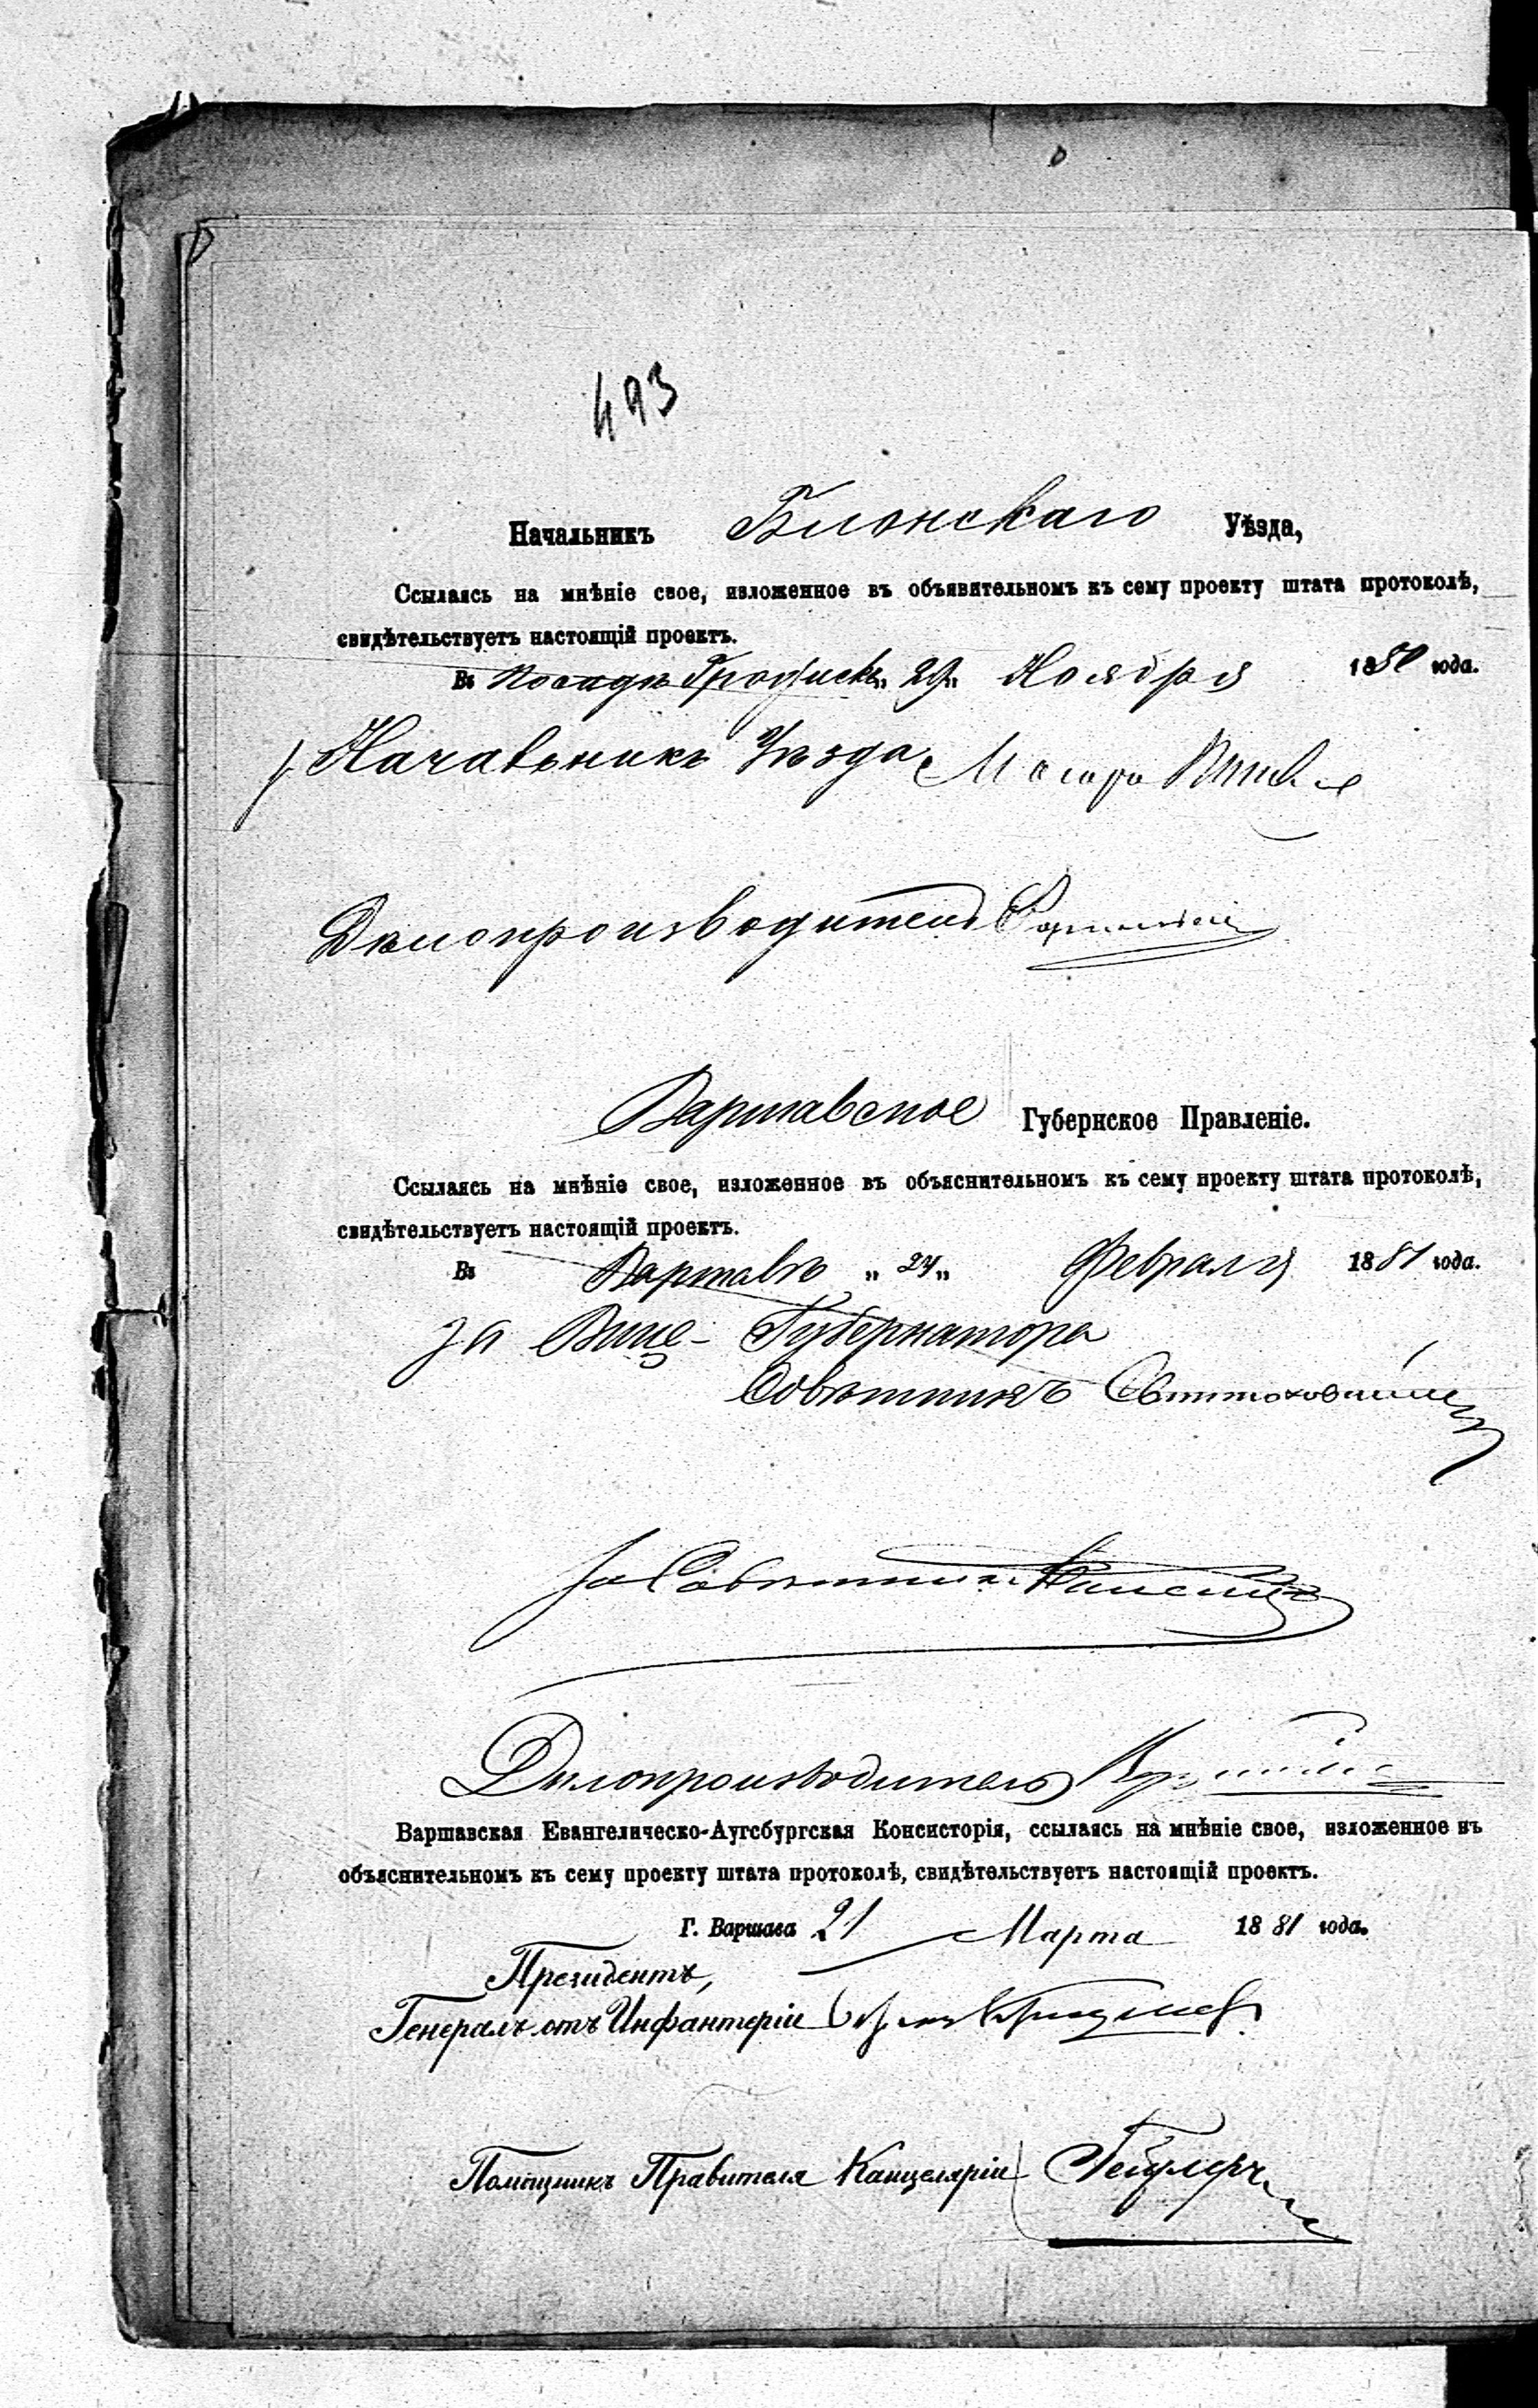 493
Начальникъ Блонскаго Уѣзда,
Ссылаясь на мнѣніе свое, изложенное въ объявительномъ къ сему проекту штата протоколѣ,
свидѣтельствуетъ настоящій проектъ.
Въ Посадѣ Гродискѣ „ 29 „ Ноября 1880 года.
Начальникъ Уѣзда, Маіоръ
Дѣлопроизводитель
Варшавское Губернское Правленіе.
Ссылаясь на мнѣніе свое, изложенное въ объяснительномъ къ сему проекту штата протоколѣ,
свидѣтельствуетъ настоящій проектъ.
Въ Варшавѣ „ 24 „ Февраля 1881 года.
За Вице-Губернатора
Совѣтникъ
За Совѣтника
Дѣлопроизводитель
Варшавская Евангелическо-Аугсбургская Консисторія, ссылаясь на мнѣніе свое, изложенное въ
объяснительномъ къ сему проекту штата протоколѣ, свидѣтельствуетъ настоящій проектъ.
Г. Варшава 21 Марта 1881 года.
Президентъ,
Генералъ отъ Инфантеріи
Помощникъ Правителя Канцеляріи